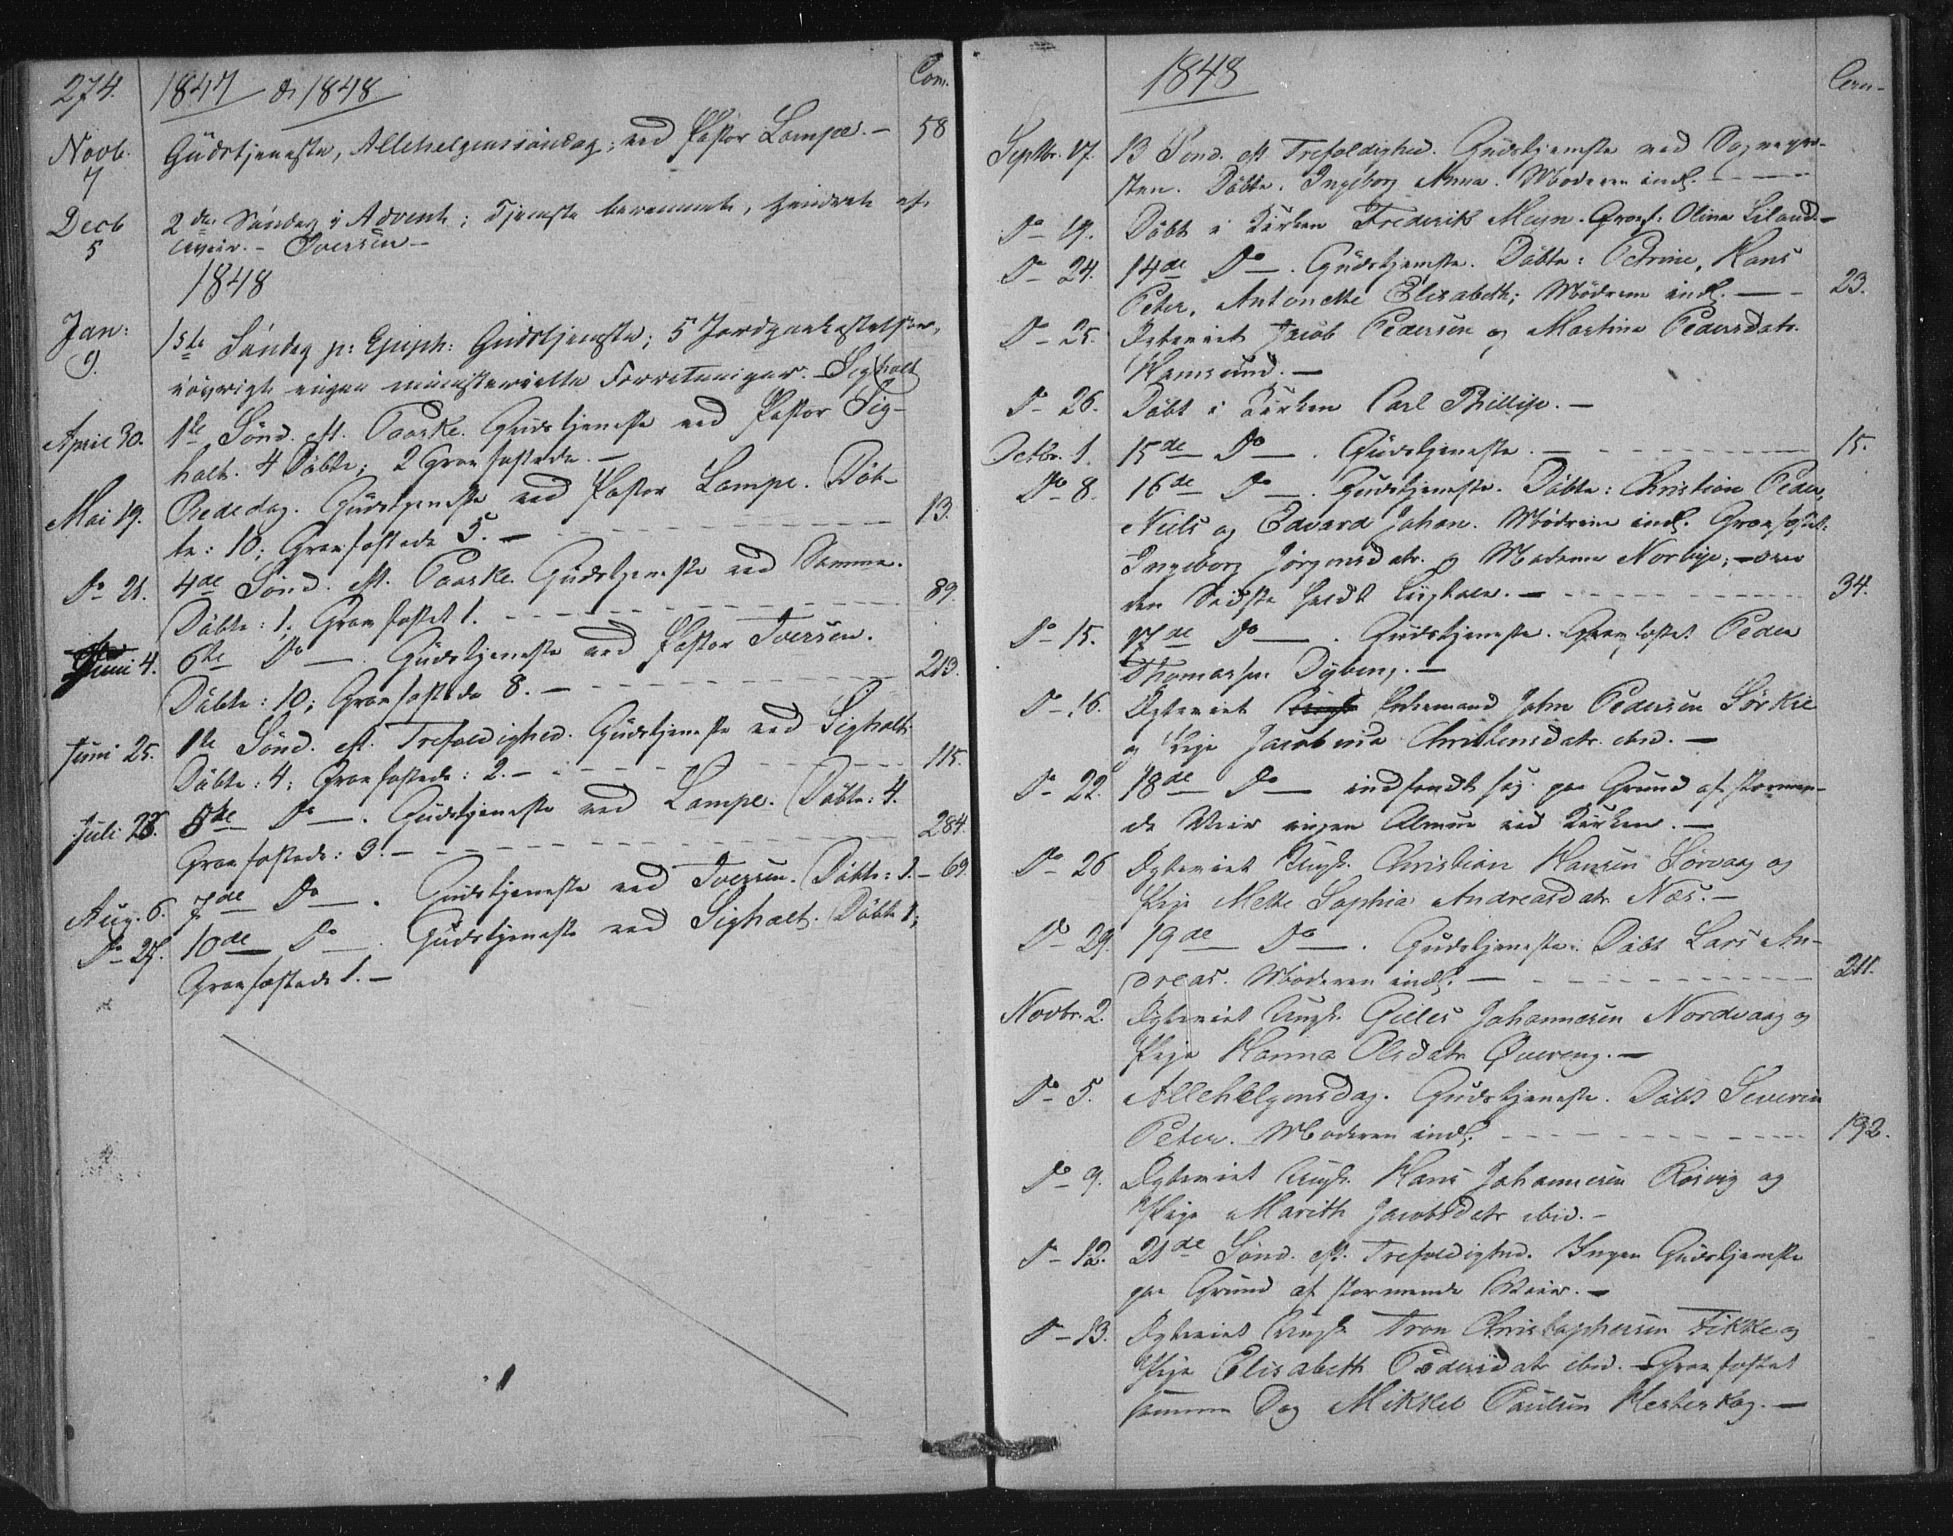 274. 1847 & 1848 Com.
Novb. 7 Gudstjeneste, Allehelgenssöndag; ved Pastor Lampe. - 58
Decb 5 2den Söndag i Advent; Tjeneste berammet, hindret af
Iversen -
1848
Jan: 9. 1ste Söndag p: Epiph: Gudstjeneste; 5 Jordpaakastelser,
iövrigt ingen ministerielle Forretninger. - Sigholt
April 30. 1te Sönd. eft. Paaske. Gudstjeneste ved Pastor Sig-
holt. 4 Döbte; 2 Gravfæstede. -
Mai 19. Bededag. Gudstjeneste ved Pastor Lampe. Döb-
te: 10; Gravfæstede 5. - 13.
Do 21. 4de Sönd. eft. Paaske. Gudstjeneste ved Samme.
Döbte: 1. Gravfæstet 1. 89.
Juni 4. 6te Do - Gudstjeneste ved Pastor Iversen.
Döbte: 10; Gravfæstede 8. - 213.
Juni 25. 1te Sönd. eft. Trefoldighed. Gudstjeneste ved Sigholt.
Döbte: 4; Gravfæstede: 2. - 115.
Juli 23. 5te Do -. Gudstjeneste ved Lampe. Döbte: 4.
Gravfæstede: 3. - 284.
Aug. 6. 7de Do -. Gudstjeneste ved Iversen. Döbte: 1. - 69.
Do 27. 10de Do -. Gudstjeneste ved Sigholt. Döbt 1;
Gravfæstede 1. -
1848 Com-
Septbr. 17. 13 Sönd. eft Trefoldighed. Gudstjeneste ved Sognepræ-
sten. Döbte: Ingeborg Anna. Moderen indl. -
Do 19. Döbt i Kirken Frederik Meyn. Gravf: Olina Liland. -
Do 24. 14de Do -. Gudstjeneste. Döbte: Petrine, Hans
Peter, Antonette Elisabeth; Mödrene indl. - 23.
Do 25. Egteviet Jacob Pedersen og Martina Pedersdatr.
Hamsund. -
Do 26. Döbt i Kirken Carl Phillip. -
Octbr. 1. 15de Do -. Gudstjeneste. - 15.
Do 8. 16de Do -. Gudstjeneste. Döbte: Christian Peder,
Niels og Edvard Johan. Mödrene indl. Gravfæstet:
Ingeborg Jörgensdatr. og Madame Norbye; - over
den Sidste holdt Ligtale. - 34.
Do 15. 17de Do -. Gudstjeneste. Gravfæstet Peder
Thomassen Dyberg. -
Do 16. Egteviet Enkemand John Pedersen Sörkil
og Pige Jacobina Christensdatr. ibid. -
Do 22. 18de Do - indfandt sig paa Grund af stormen-
de Veir ingen Almue ved Kirken. -
Do 26 Egteviet Ungk. Christian Hansen Sörvaag og
Pige Mette Sophia Andreasdatr Næs. -
Do 29. 19de Do -. Gudstjeneste. Döbt Lars An-
dreas. Moderen indl. - 211.
Novbr. 2. Egteviet Ungk. Gilles Johannesen Nordvaag og
Pige Hanna Olsdatr Övereng. -
Do 5. Allehelgensdag. Gudstjeneste. Döbt Severin
Peter. Moderen indl. 192.
Do 9. Egteviet Ungk. Hans Johannesen Rösvig og
Pige Marith Jacobsdatr ibid. -
Do 12. 21de Sönd. eft. Trefoldighed. Ingen Gudstjeneste
paa Grund af stormende Veir. -
Do 13. Egteviet Ungk. Tron Christophersen Fikke og
Pige Elisabeth Pedersdatr ibid. - Gravfæstet
samme Dag Mikkel Paulsen Hesteskog. -